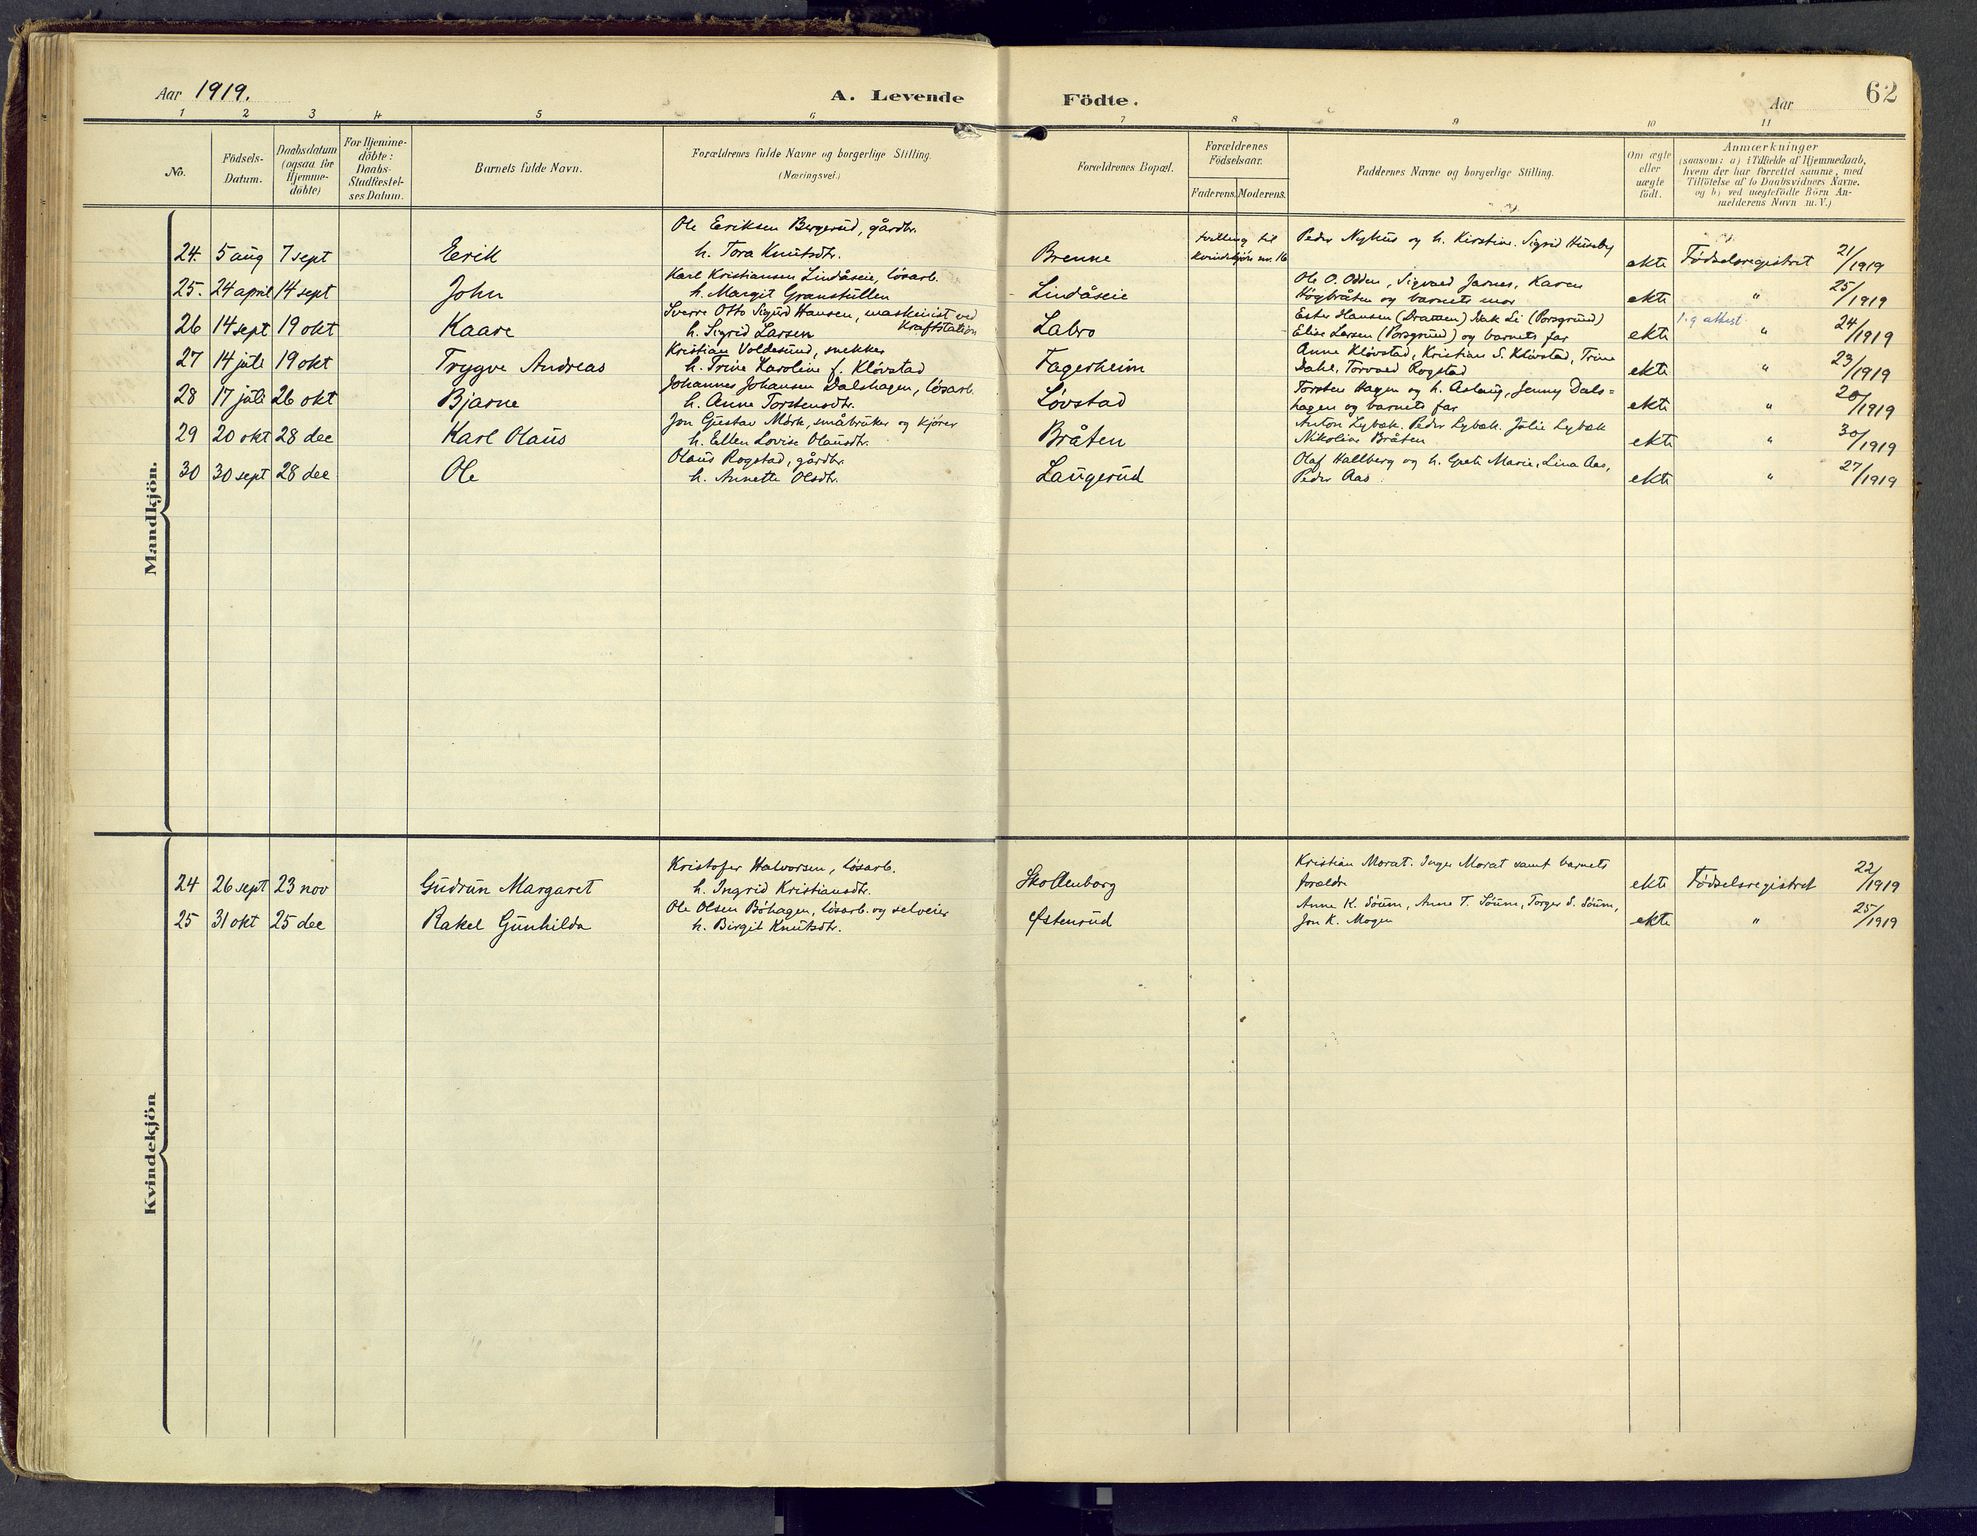 Aar 1919. A. Levende Födte. Aar 62
1 2 3 4 5 6 7 8 9 10 11
No.
Födsels-Datum.
Daabsdatum (ogsaa for Hjemmedöbte)
For Hjemmedöbte: Daabs-Stadfestelses Datum.
Barnets fulde Navn.
Forældrenes fulde Navne og borgerlige Stilling. (Næringsvei.)
Forældrenes Bopæl.
Forældrenes Födselsaar.
Faderens. Moderens.
Faddernes Navne og borgerlige Stilling.
Om ægte eller uægte födt.
Anmærkninger
(saasom: a) i Tilfælde af Hjemmedaab,
hvem der har forrettet samme, med
Tilföielse af to Daabsvidners Navne,
og b) ved uegtefödte Börn An-
melderens Navn m. V.)
Mandkjön.
Ole Eriksen Bergerud, gårdbr.
24. 5 aug 7 sept Erik h. Tora Knutsdtr. Brenne tvilling til kvindekjön nr. 16 Peder Nyhus og h. Kirstine. Sigrid Huseby ekte Födselsregistret 21/1919
Karl Kristiansen Lindåseie, løsarb.
25. 24 april 14 sept John h. Margit Granstullen Lindåseie Ole O. Odden, Sigvard Jarnes, Karen
Högbråten og barnets mor ekte " 25/1919
Sverre Otto Sigurd Hansen, maskinist ved Kraftstation
26 14 sept 19 okt Kaare h. Sigrid Larsen Labro Ester Hansen (Drammen) Isak Li (Porsgrund)
Elise Larsen (Porsgrund) og barnets far ekte 1.g attest " 24/1919
Kristian Voldesund, snekker
27 14 juli 19 okt Trygve Andreas h. Trine Karoline f. Kløvstad Fagerheim Anne Kløvstad, Kristian S. Kløvstad, Trine
Dahl, Torvald Rogstad ekte " 23/1919
Johannes Johansen Dalshagen, løsarb.
28 17 juli 26 okt Bjarne h. Anne Torstensdtr. Løvstad Torsten Hagen og h. Aslaug, Jenny Dals=
hagen og barnets far ekte " 20/1919
Jon Gustav Mørk, småbruker og kjører
29 20 okt 28 dec Karl Olaus h. Ellen Lovise Olausdtr. Bråten Anton Lybæk. Peder Lybæk. Julie Lybæk
Nikoline Bråten ekte " 30/1919
Olaus Rogstad, gårdbr.
30 30 sept 28 dec Ole h. Annette Olsdtr. Laugerud Olaf Hallberg og h. Grete Marie, Lina Aas,
Peder Aas ekte " 27/1919
Kvindekjön
Kristofer Halvorsen, løsarb.
24 26 sept 23 nov Gudrun Margaret h. Ingrid Kristiansdtr. Skollenborg Kristian Morat. Inger Morat samt barnets
foreldre ekte Födselsregistret 22/1919
Ole Olsen Bøhagen, løsarb. og selveier
25 31 okt 25 dec Rakel Gunhilda h. Birgit Knutsdtr. Østenrud Anne K. Søum, Anne T. Søum, Torger S. Søum,
Jon K. Mogen ekte " 25/1919